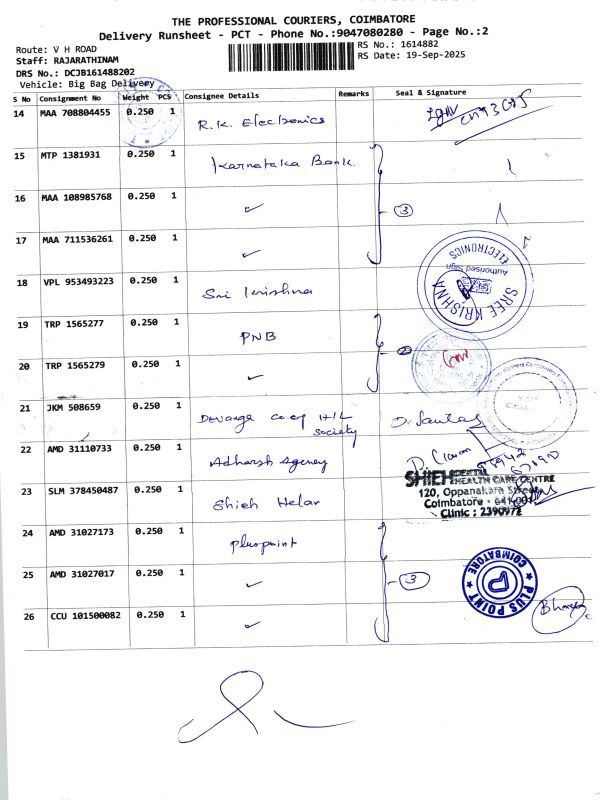 THE PROFESSIONAL COURIERS, COIMBATORE
Delivery Runsheet - PCT - Phone No.:9047080280 - Page No.:2
Route: V H ROAD
RS No.: 1614882
Staff: RAJARATHINAM
RS Date: 19-Sep-2025
DRS No.: DCJB161488202
Vehicle: Big Bag Delivery
S No Consignment No Weight PCS Consignee Details Remarks Seal & Signature
14 MAA 708804455 0.250 1 R.K. Electronics
15 MTP 1381931 0.250 1 Karnataka Bank
16 MAA 108985768 0.250 1 ✓ 3
17 MAA 711536261 0.250 1 ✓
SREE KRISHNA ELECTRONICS
Authorised Sign
18 VPL 953493223 0.250 1 Sri Krishna
19 TRP 1565277 0.250 1 PNB
20 TRP 1565279 0.250 1 ✓ 2
21 JKM 508659 0.250 1 Devanga co op H/L
Society
22 AMD 31110733 0.250 1 Adharsh Agency
23 SLM 378450487 0.250 1 Shieh Helar
SHIEH DENTAL
HEALTH CARE CENTRE
120, Oppanakara Street,
Coimbatore - 641001
Clinic : 2390972
24 AMD 31027173 0.250 1 pluspoint
25 AMD 31027017 0.250 1 ✓ 3
PLUS POINT
COIMBATORE
26 CCU 101500082 0.250 1 ✓